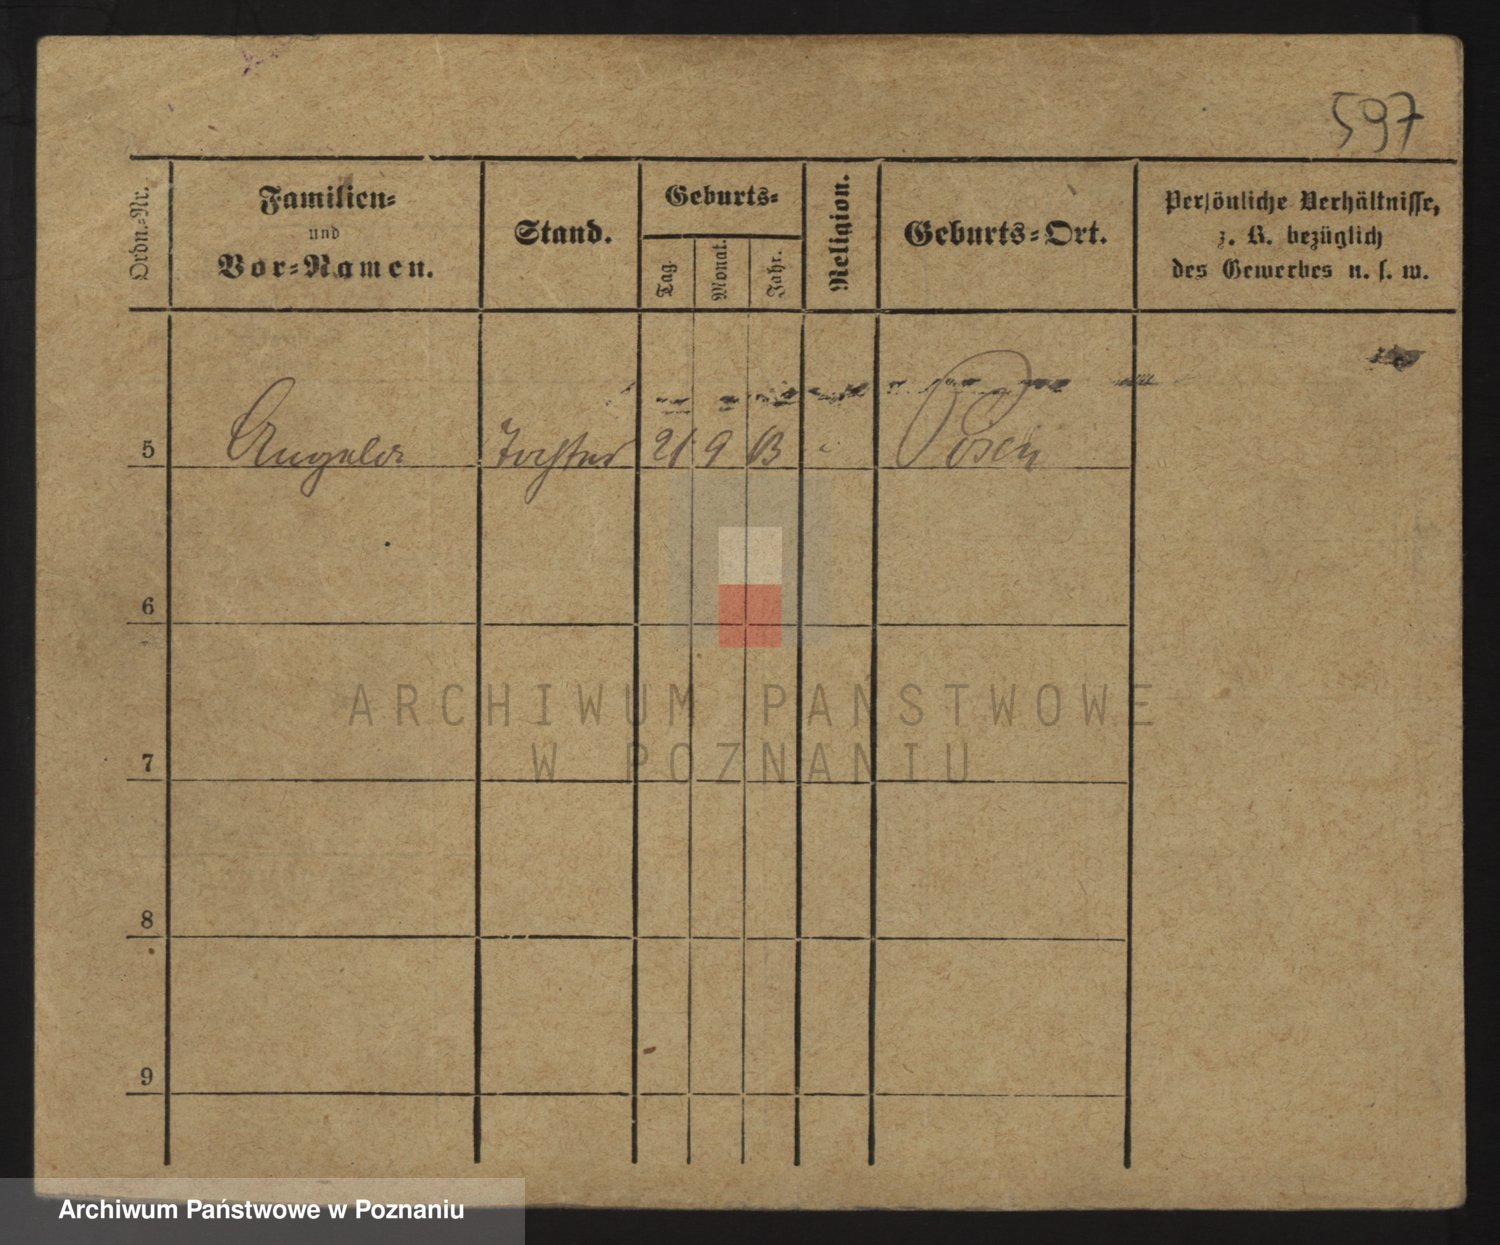 597
Ordn.-Nr.
Familien-
und
Vor-Namen.
Stand.
Geburts-
Tag.
Monat.
Jahr.
Religion.
Geburts-Ort.
Persönliche Verhältnisse,
z. B. bezüglich
des Gewerbes u. s. w.
5 Tochter 21 9 Posen
6
7
8
9
ARCHIWUM PAŃSTWOWE
W POZNANIU
Archiwum Państwowe w Poznaniu